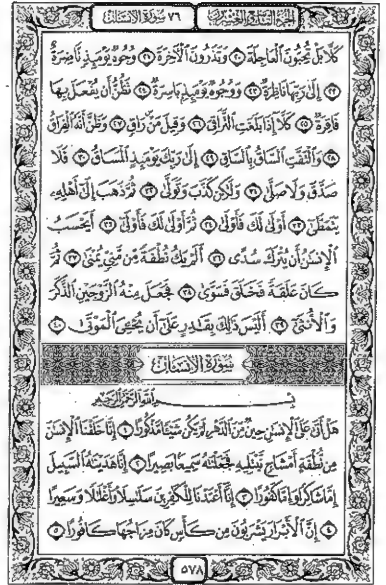 الجزء التاسع والعشرون ٧٦ سورة الإنسان
كَلَّا بَلْ تُحِبُّونَ ٱلْعَاجِلَةَ ٢٠ وَتَذَرُونَ ٱلْأَخِرَةَ ٢١ وُجُوهٌ يَوْمَئِذٍ نَّاضِرَةٌ
٢٢ إِلَىٰ رَبِّهَا نَاظِرَةٌ ٢٣ وَوُجُوهٌ يَوْمَئِذٍ بَاسِرَةٌ ٢٤ تَظُنُّ أَن يُفْعَلَ بِهَا
فَاقِرَةٌ ٢٥ كَلَّا إِذَا بَلَغَتِ ٱلتَّرَاقِيَ ٢٦ وَقِيلَ مَنْ رَاقٍ ٢٧ وَظَنَّ أَنَّهُ ٱلْفِرَاقُ
٢٨ وَٱلْتَفَّتِ ٱلسَّاقُ بِٱلسَّاقِ ٢٩ إِلَىٰ رَبِّكَ يَوْمَئِذٍ ٱلْمَسَاقُ ٣٠ فَلَا
صَدَّقَ وَلَا صَلَّىٰ ٣١ وَلَٰكِن كَذَّبَ وَتَوَلَّىٰ ٣٢ ثُمَّ ذَهَبَ إِلَىٰ أَهْلِهِۦ
يَتَمَطَّىٰ ٣٣ أَوْلَىٰ لَكَ فَأَوْلَىٰ ٣٤ ثُمَّ أَوْلَىٰ لَكَ فَأَوْلَىٰ ٣٥ أَيَحْسَبُ
ٱلْإِنسَٰنُ أَن يُتْرَكَ سُدًى ٣٦ أَلَمْ يَكُ نُطْفَةً مِّن مَّنِيٍّ يُمْنَىٰ ٣٧ ثُمَّ
كَانَ عَلَقَةً فَخَلَقَ فَسَوَّىٰ ٣٨ فَجَعَلَ مِنْهُ ٱلزَّوْجَيْنِ ٱلذَّكَرَ
وَٱلْأُنثَىٰ ٣٩ أَلَيْسَ ذَٰلِكَ بِقَٰدِرٍ عَلَىٰ أَن يُحْـِۧيَ ٱلْمَوْتَىٰ ٤٠
سورة الإنسان
بِسْمِ ٱللَّهِ ٱلرَّحْمَٰنِ ٱلرَّحِيمِ
هَلْ أَتَىٰ عَلَى ٱلْإِنسَٰنِ حِينٌ مِّنَ ٱلدَّهْرِ لَمْ يَكُن شَيْـًٔا مَّذْكُورًا ١ إِنَّا خَلَقْنَا ٱلْإِنسَٰنَ
مِن نُّطْفَةٍ أَمْشَاجٍ نَّبْتَلِيهِ فَجَعَلْنَٰهُ سَمِيعًا بَصِيرًا ٢ إِنَّا هَدَيْنَٰهُ ٱلسَّبِيلَ
إِمَّا شَاكِرًا وَإِمَّا كَفُورًا ٣ إِنَّا أَعْتَدْنَا لِلْكَٰفِرِينَ سَلَٰسِلَا۟ وَأَغْلَٰلًا وَسَعِيرًا
٤ إِنَّ ٱلْأَبْرَارَ يَشْرَبُونَ مِن كَأْسٍ كَانَ مِزَاجُهَا كَافُورًا ٥
٥٧٨